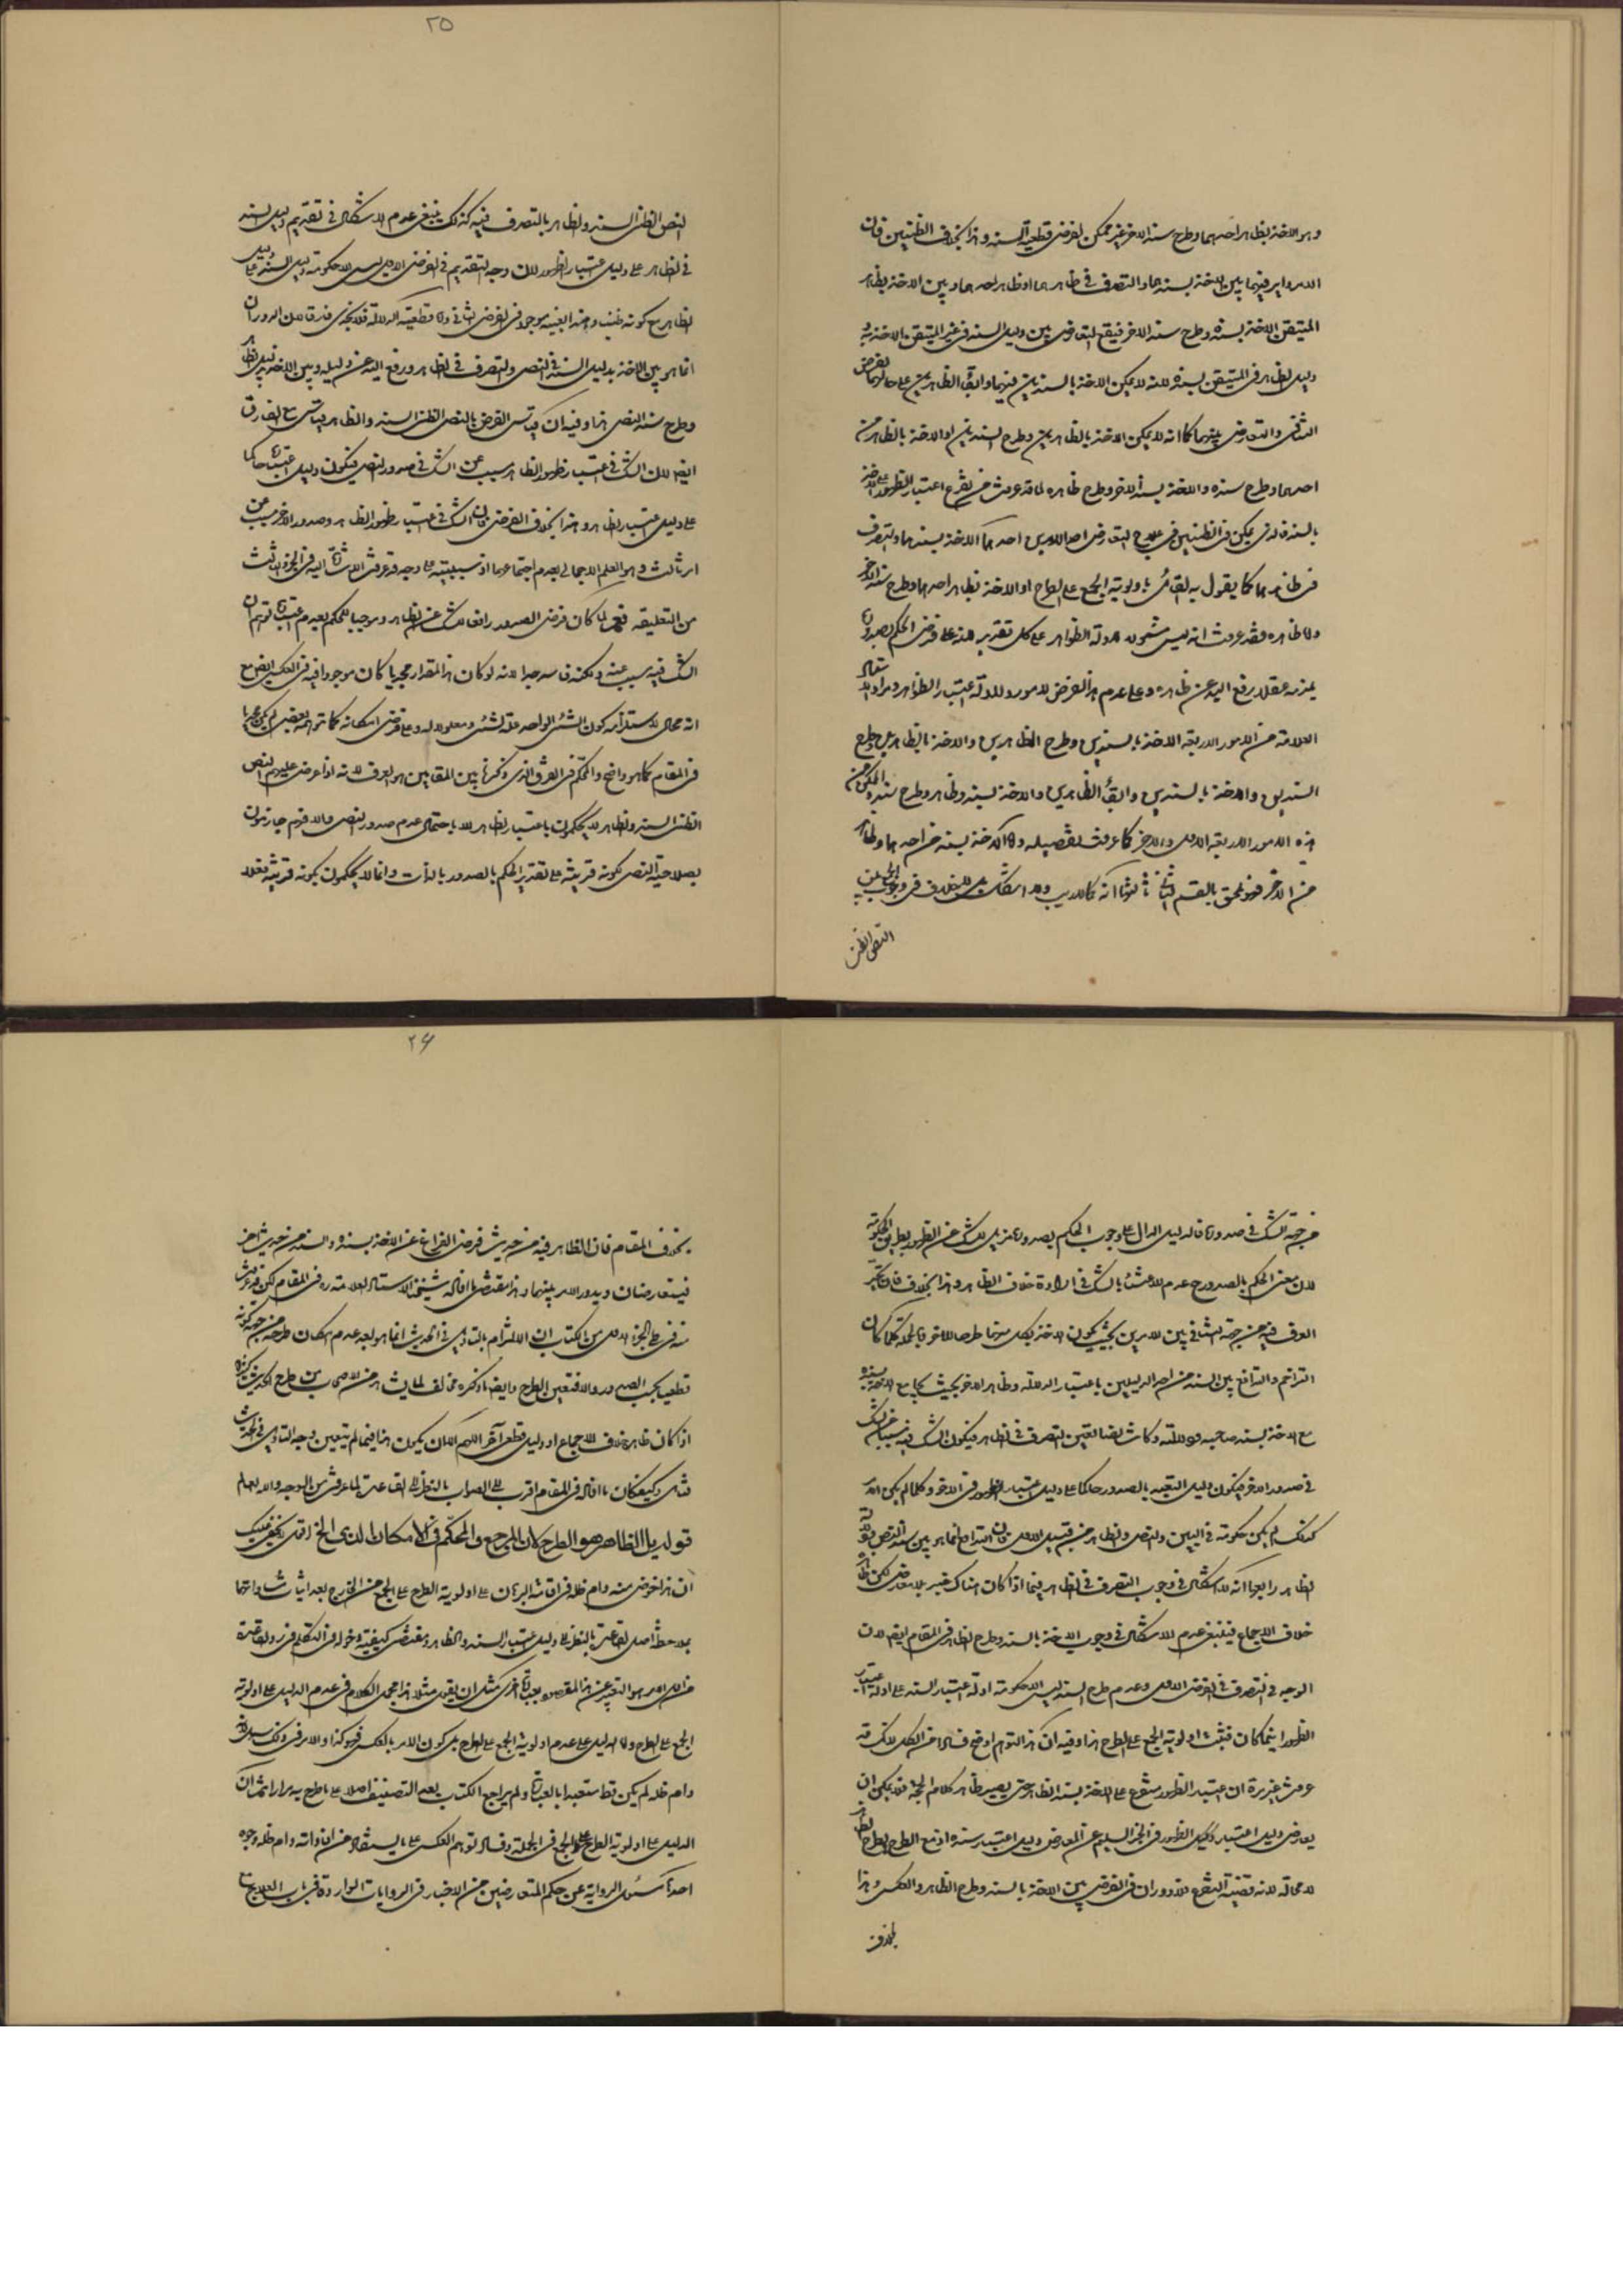 وهو الاخذ بظاهر احدهما وطرح سند الاخر غير ممكن لفرض قطعية السند وهذا بخلاف الظنيين فان
الامر داير فيهما بين الاخذ بسندهما والتصرف في ظاهرهما او ظاهر احدهما وبين الاخذ بظاهر
المتيقن الاخذ بسنده وطرح سند الاخر فيقع التعارض بين دليل السند في غير المتيقن الاخذ به
دليل الظاهر في المتيقن بسنده لانه لا يمكن الاخذ بالسندين فيهما وابقاء الظاهرين على حالهما لفرض
التنافي والتعارض بينهما كما انه لا يمكن الاخذ بالظاهرين وطرح السندين او الاخذ بالظاهر من
احدهما وطرح سنده والاخذ بسند الاخر وطرح ظاهره لما قد عرفت من تفرع اعتبار الظهور على الاخذ
بالسند فالذي يمكن في الظنيين في علاج التعارض احد الامرين احدهما الاخذ بسندهما والتصرف
في ظاهرهما كما يقول به القائل باولوية الجمع على الطرح او الاخذ بظاهر احدهما وطرح سند الاخر
ولا ظاهره فقد عرفت انه ليس شمول ادلة الظواهر على كل تقدير لانه على فرض الحكم بصدوره
يلزمه عقلا رفع اليد عن ظاهره وعلى عدم هذا الفرض لا مورد لادلة اعتبار الظواهر ومراد
العلامة من الامور الاربعة الاخذ بالسندين وطرح الظاهرين والاخذ بالظاهرين وطرح
السندين والاخذ بالسندين وابقاء الظاهرين والاخذ بسند وظاهر وطرح سند والممكن من
هذه الامور الاربعة الاول والاخر كما عرفت تفصيله واما الاخذ بسند من احدهما وظاهر
من الاخر فهو ملحق بالقسم الثاني ثالثها انه كما لا ريب ولا اشكال بل لا خلاف في وجوب الجمع بين
النص الظني
٢٥
النص الظني السند والظاهر بالتصرف فيه كذلك ينبغي عدم الاشكال في تقديم دليل السند
في الظاهر على دليل اعتبار الظهور لان وجه التقديم في الفرض الاول ليس الا حكومة دليل السند على دليل
الظاهر مع كونه ظنيا وهذا بعينه موجود في الفرض الثاني واما قطعية الدلالة فلا يجدي فرقا لان الدوران
انما هو بين الاخذ بدليل السند في النص والتصرف في الظاهر ورفع اليد عن دليله وبين الاخذ بدليل الظاهر
وطرح سند النص هذا وفيه ان قياس الفرض بالنص الظني السند والظاهر قياس مع الفارق
ايضا لان الشك في اعتبار ظهور الظاهر مسبب عن الشك في صدور النص فيكون دليل اعتباره حاكما
على دليل اعتبار الظاهر وهذا بخلاف الفرض فان الشك في اعتبار ظهور الظاهر وصدور الاخر مسبب عن
امر ثالث وهو العلم الاجمالي بعدم اجتماعهما او سببيته على وجه قد عرفت الاشارة اليه في الجزء الثالث
من التعليقة فهو ان كان فرض الصدور رافعا للشك عن الظاهر وموجبا للحكم بعدم اعتباره توهم ان
الشك فيه مسبب عنه ولكنه فاسد جدا لانه لو كان هذا المقدار مجديا كان موجودا فيه في العكس ايضا مع
انه محال لاستلزامه كون الشيء الواحد علة لشيء ومعلولا له وعلى فرض امكانه كما توهمه بعض لم يكن مجديا
في المقام كما هو واضح والحكم في الفرق الذي ذكرنا بين المقامين هو العرف لانه اذا عرض عليهم النص
الظني السند والظاهر لا يحكمون باعتبار الظاهر الا باحتمال عدم صدور النص والا فهم جازمون
بصلاحية النص لكونه قرينة على تقدير الحكم بالصدور بالذات وانما لا يحكمون بكونه قرينة فعلا
من جهة الشك في صدوره فالدليل الدال على وجوب الحكم بصدوره مزيل للشك من الظهور بطريق الحكومة
لان معنى الحكم بالصدور ح عدم الاعتناء بالشك في ارادة خلاف الظاهر وهذا بخلاف
العرف فيه من جهة التنافي بين الامرين بحيث يكون الاخذ بكل منهما طرحا للاخر فبالجملة كلما كان
التزاحم والتدافع بين السند من احد الدليلين باعتبار الدلالة وظاهر الاخر بحيث يجامع الاخر بسنده
مع الاخذ بسند صاحبه ودلالته وكانت ايضا تعيين التصرف في الظاهر فيكون الشك فيه مسببا عن الشك
في صدور الاخر فيكون دليل التعبد بالصدور حاكما على دليل اعتبار الظهور في الاخر وكلما لم يكن الامر
كذلك لم يكن حكومة في البين والنص والظاهر من قبيل الاول فان التدافع انما هو بين سند النص ودلالة
الظاهر رابعها انه لا اشكال في وجوب التصرف في الظاهر فيما اذا كان هناك خبر بلا معارض لكن ظاهره
خلاف الاجماع فينبغي عدم الاشكال في وجوب الاخذ بالسند وطرح الظاهر في المقام ايضا لان
الوجه في التصرف في الفرض الاول وعدم طرح السند ليس الا حكومة ادلة اعتبار السند على ادلة اعتبار
الظهور اينما كان فثبت اولوية الجمع على الطرح هذا وفيه ان هذا التوهم اوضح فسادا من الكل لانك قد
عرفت غير مرة ان اعتبار الظهور متفرع على الاخذ بسند الظاهر حتى يصير ظاهر كلام الحجة فلا يمكن ان
يعارض دليل اعتبار الظهور في الخبر السليم عن المعارض دليل اعتبار سنده اذ مع الطرح يطرح الظاهر
لا محالة لانه قضية التفرع فلا دوران في الفرض بين الاخذ بالسند وطرح الظاهر والعكس وهذا
بخلاف
٢٦
بخلاف المقام فان الظاهر فيه من خبر يثبت فرض الفراغ عن الاخذ بسنده والسند من خبر اخر
فيتعارضان ويدور الامر بينهما وهذا مقتضى ما افاده شيخنا الاستاد العلامة ره في المقام لكن قد عرفت
منه في طي الجزء الاول من الكتاب ان الالتزام بالتاويل في الحديث انما هو بعد عدم امكان طرحه من جهة كونه
قطعيا بحسب الصدور والا فتعين الطرح وايضا ما ذكره مخالف لما يشاهد من الاصحاب من طرح الحديث كثيرا
اذا كان ظاهره خلاف الاجماع او دليل قطعي آخر اللهم الا ان يكون هذا فيما لم يتعين وجه التاويل في الحديث
فتامل وكيفكان ما افاده في المقام اقرب الى الصواب بالنظر الى القاعدة لما عرفت من الوجه والله العالم
قوله بل الظاهر هو الطرح لان المرجع والمحكم في الامكان الذي الخ اقول لا يخفى عليك
ان هذا خوض منه دام ظله في اقامة البرهان على اولوية الطرح على الجمع من الخارج بعد اثباتها
بملاحظة اصل القاعدة بالنظر الى دليل اعتبار السند والظاهر ومقتضى كيفية دخوله في التكلم في رد القاعدة
من اول الامر هو التعبير عن هذا المقصود بعبارة اخرى مثل ان يقول مثلا هذا مجمل الكلام في عدم الدليل على اولوية
الجمع على الطرح واما الدليل على عدم اولوية الجمع على الطرح بل كون الامر بالعكس فهو كذا والامر في ذلك سهل لانه
دام ظله لم يكن قط متعبدا بالعبارة ولم يراجع الكتاب بعد التصنيف اصلا على ما صرح به مرارا ثم ان
الدليل على اولوية الطرح على الجمع في الجملة وفساد توهم العكس على ما يستفاد من افاداته دام ظله وجوه
احدها سؤال الرواة عن حكم المتعارضين من الاخبار في الروايات الواردة في باب العلاج مع